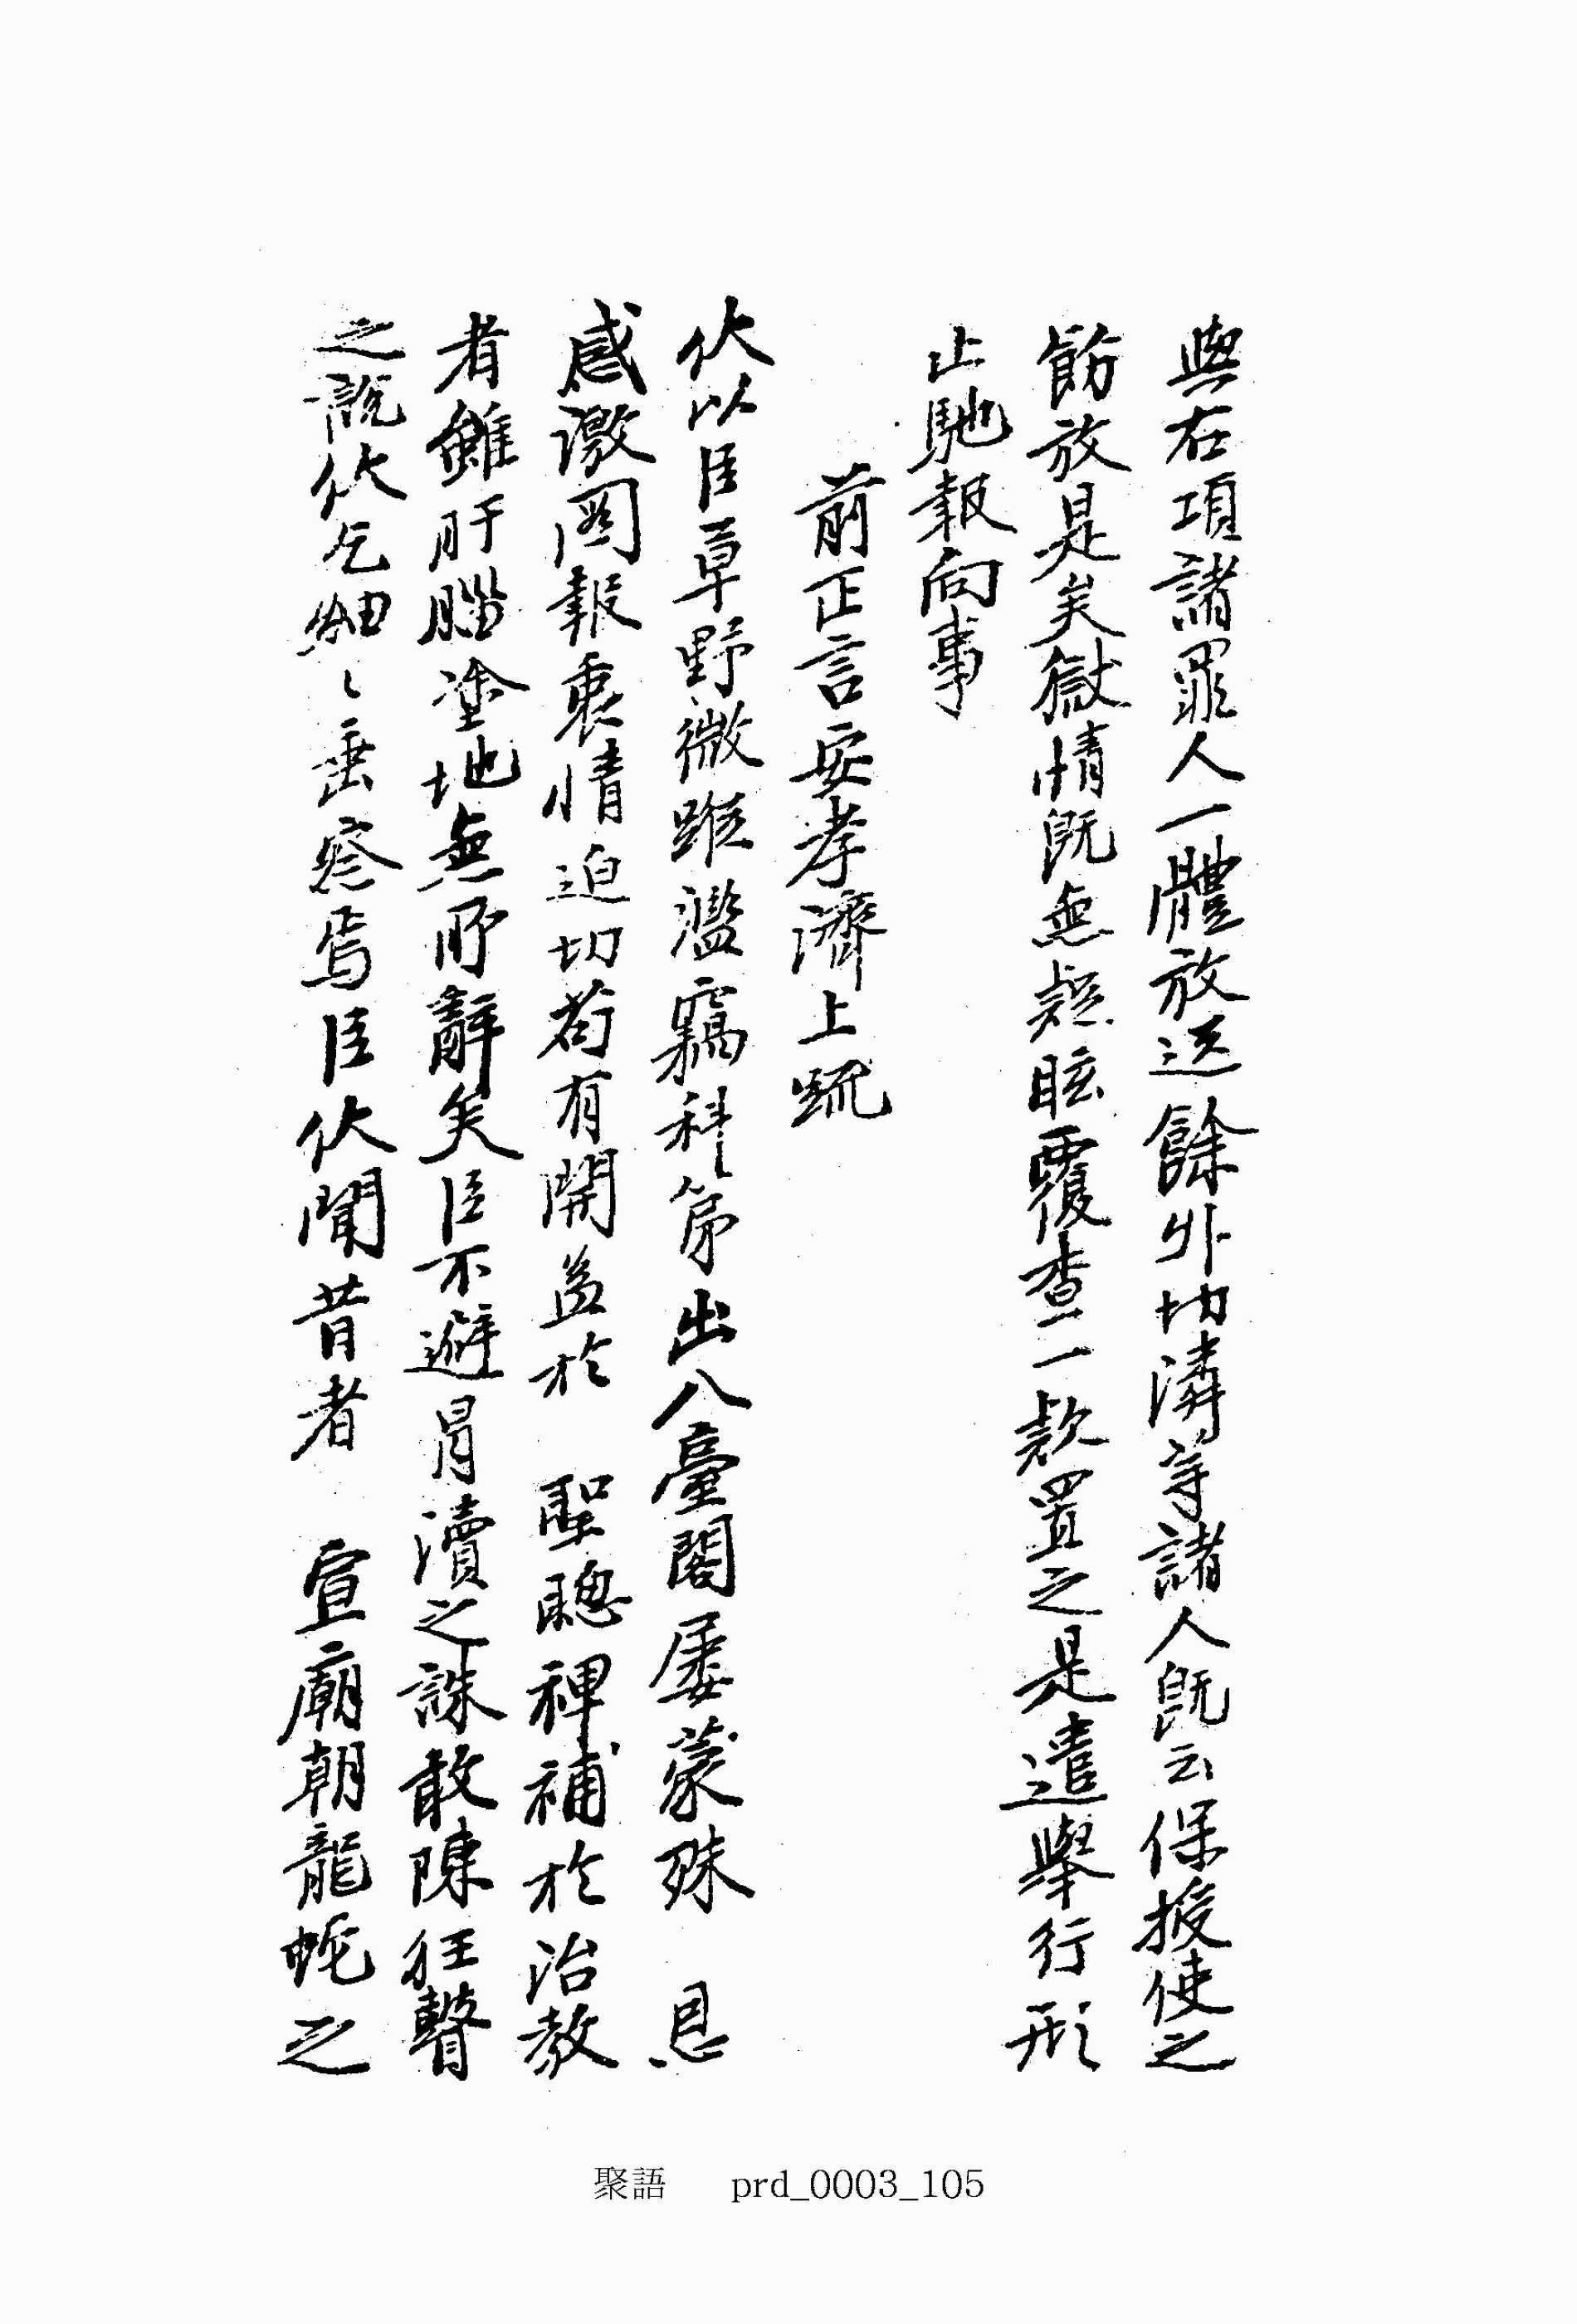 與右項諸罪人一體放送餘外切隣等諸人旣云保授使之
飭放是矣獄情旣無疑眩覆査一款置之是遣擧行形
止馳報向事
前正言安孝濟上疏
伏以臣草野微蹤濫竊科第出入臺閣屢蒙殊 恩
感激圖報衷情迫切苟有開益於 聖聰裨補於治敎
者雖肝腦塗地無所辭矣臣不避冒瀆之誅敢陳狂瞽
之說伏乞細〻垂察焉臣伏聞昔者 宣廟朝龍蛇之
聚語 prd_0003_105